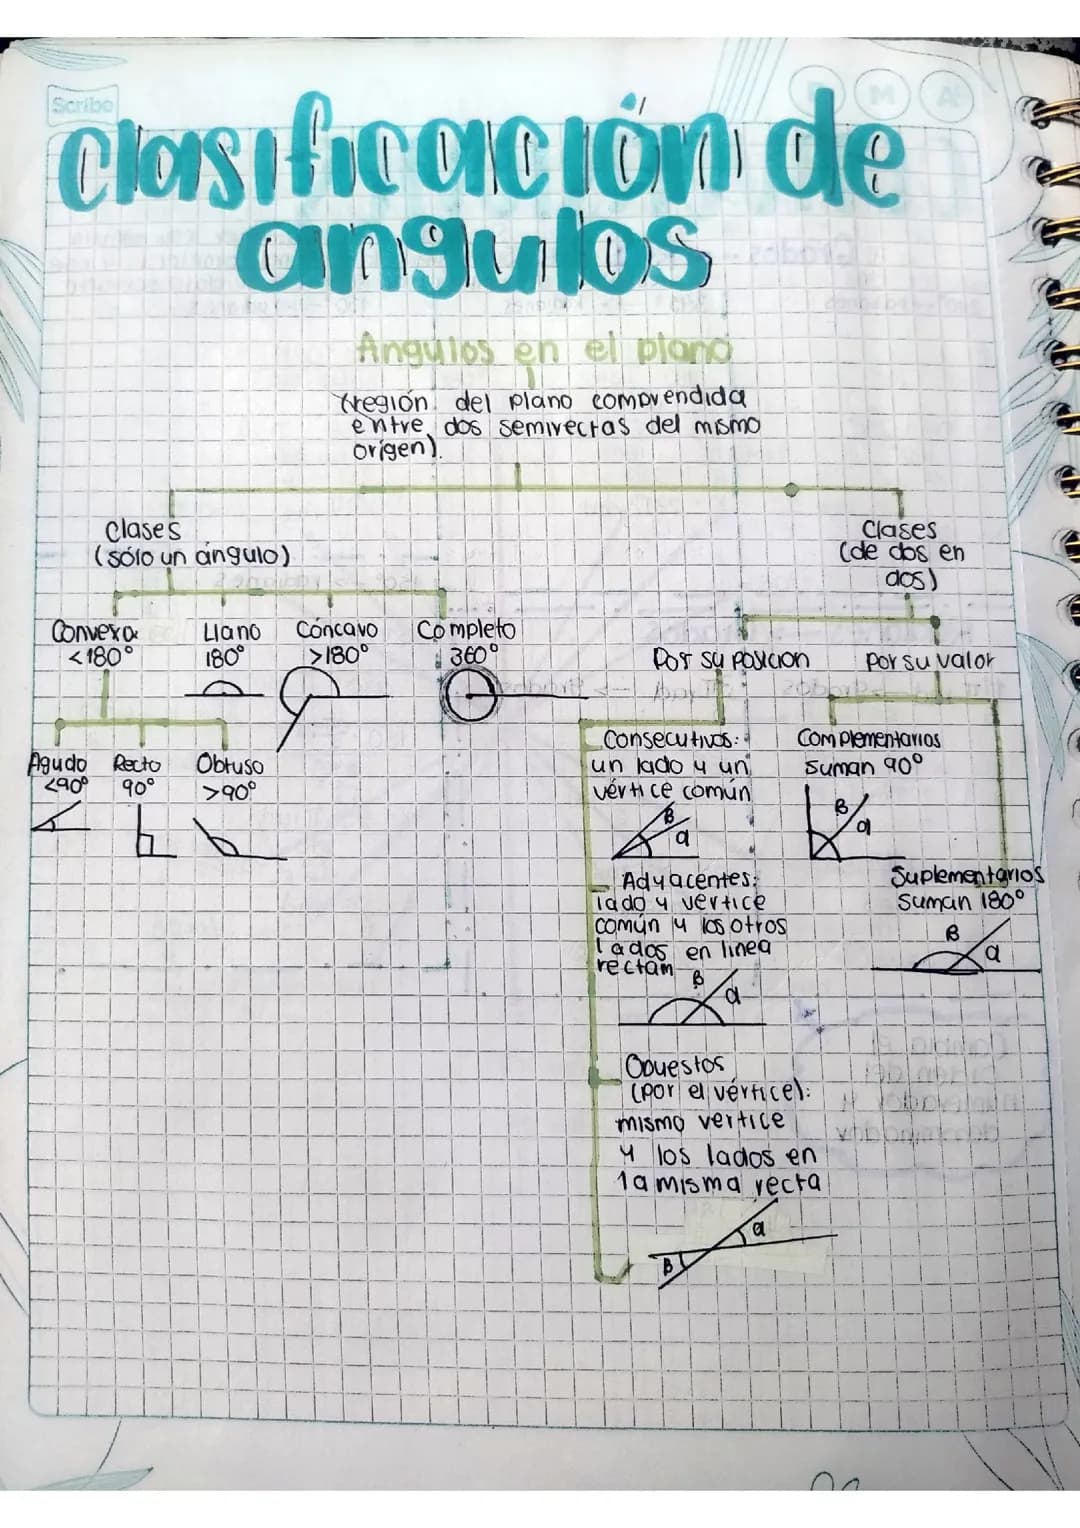 Scribe
Clasificación de
angulos
Angulos en el plano
(región del plano comprendida
entre dos semirectas del mismo
origen).
Clases
(sólo un ángulo)
Convexo
<180°
Llano
180°
Cóncavo
>180°
Completo
360°
Agudo
<90°
Recto
90°
Obtuso
>90°
Clases
(de dos en
dos)
Por su posicion
Por su valor
Consecutivos:
un lado y un
vértice común
B
a
Adyacentes:
lado y vertice
común y los otros
lados en linea
rectam
B
a
Opuestos
(por el vértice):
mismo vertice
y los lados en
la misma recta
a
B
Complementarios
suman 90°
B
a
Suplementarios
suman 180°
B
a